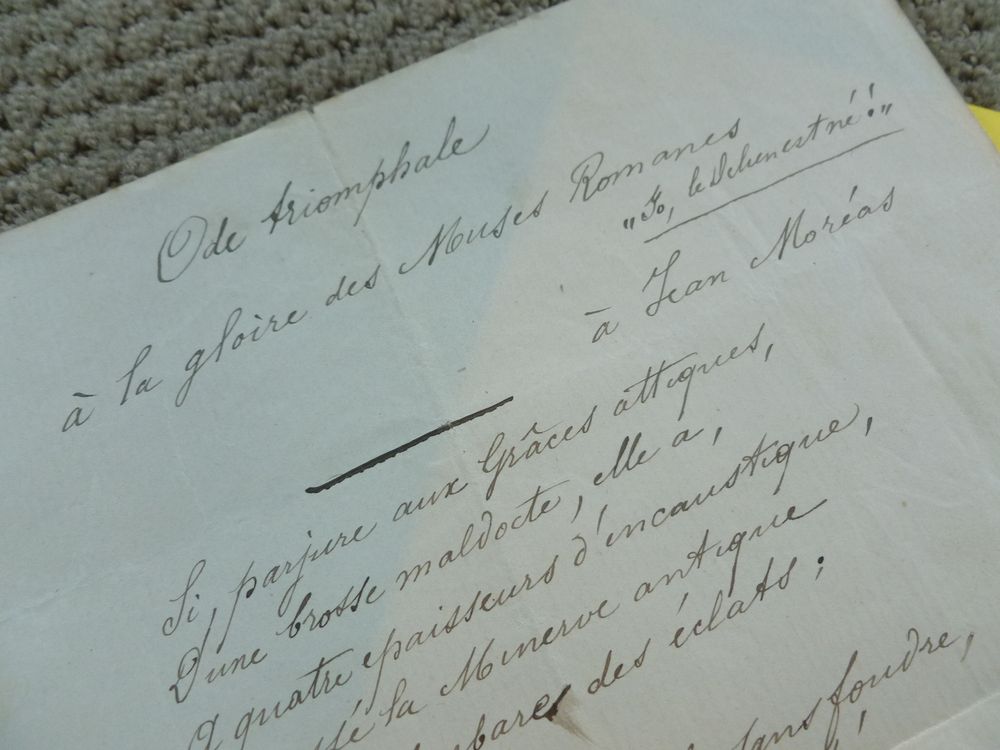 Ode triomphale
à la gloire des Muses Romanes
"Io, le Dehenest né!"
à Jean Moréas
Si, parjure aux Grâces attiques,
D'une brosse maldocte, elle a,
A quatre épaisseurs d'encaustique,
la Minerve antique
des éclats;
sans foudre,